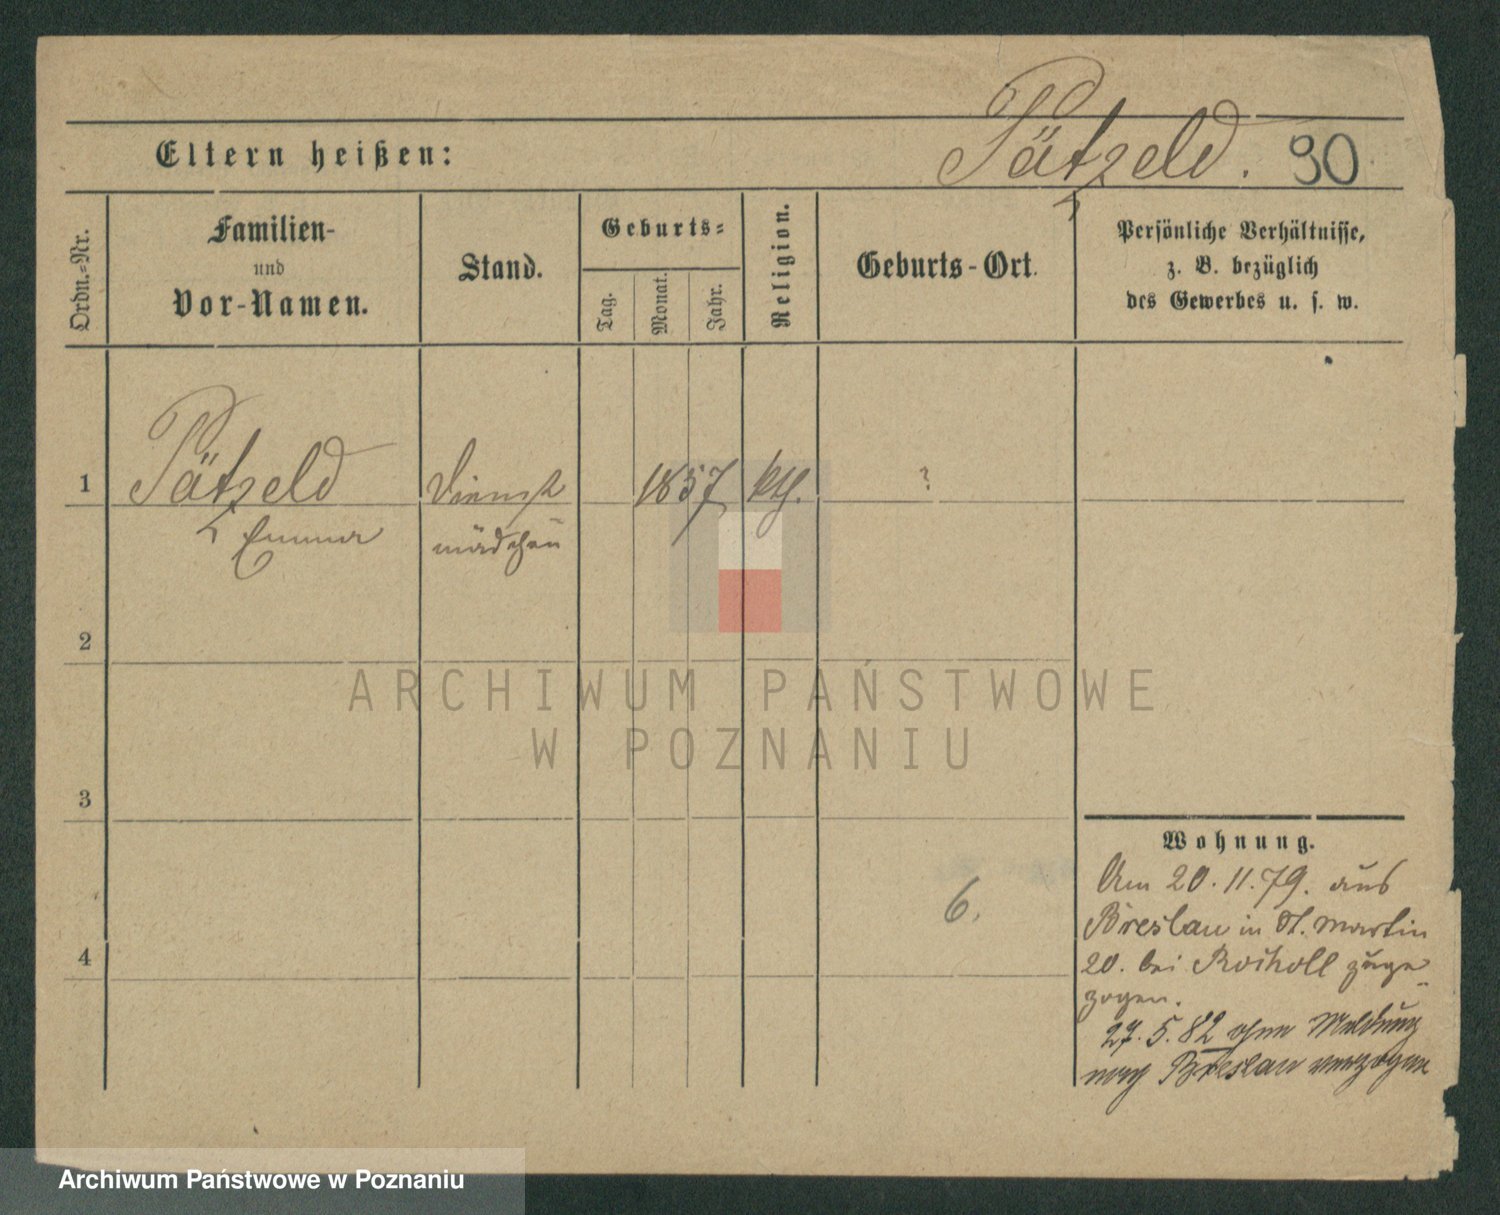 Pätzeld. 90
Eltern heißen:
Ordn.-Nr.
Familien-
und
Vor-Namen.
Stand.
Geburts-
Tag.
Monat.
Jahr.
Religion.
Geburts-Ort.
Persönliche Verhältnisse,
z. B. bezüglich
des Gewerbes u. s. w.
1 Pätzeld Dienst 1857 kth. ?
Emma mädchen
2
ARCHIWUM PAŃSTWOWE
W POZNANIU
3
Wohnung.
6.
Am 20.11.79. aus
Breslau in St. Martin
20. bei zuge-
zogen.
4
27.5.82 ohne Meldung
nach Breslau verzogen
Archiwum Państwowe w Poznaniu